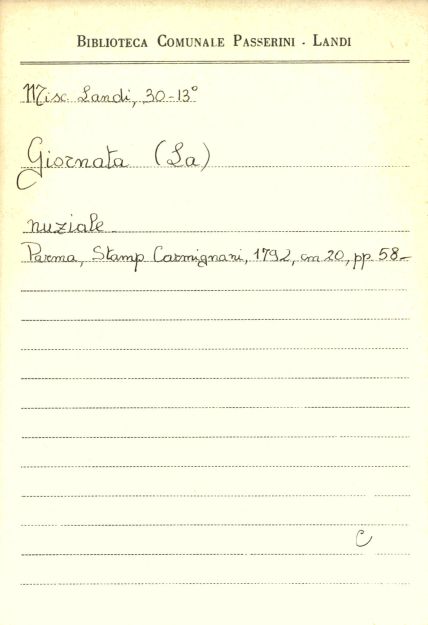 BIBLIOTECA COMUNALE PASSERINI - LANDI
Misc. Landi, 30-13°
Giornata (La)
nuziale
Parma, Stamp. Carmignani, 1792, cm 20, pp. 58-
C